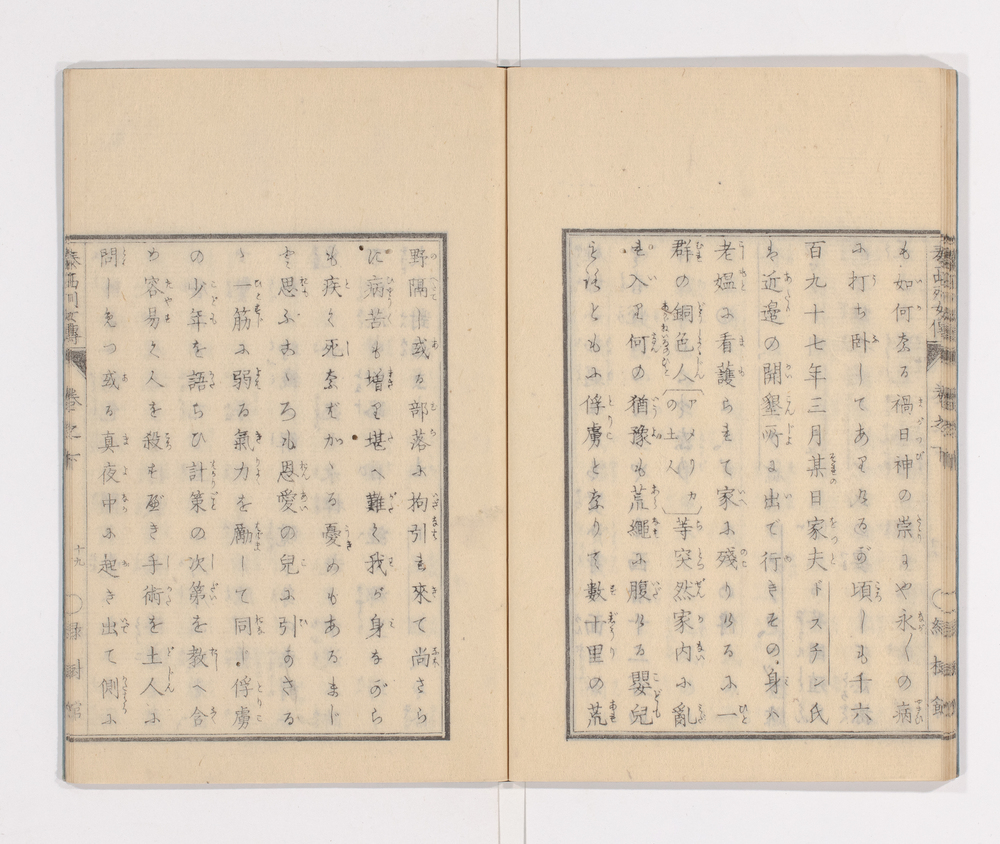 も如何なる禍日神の祟りにや永くの病
に打ち卧してありけるが頃しも千六
百九十七年三月某日家夫ドスチン氏
は近邊の開墾所に出て行きその身ハ
老媼に看護られて家に殘りけるに一
群の銅色人〔アメリカの土人〕等突然家内に亂
れ入り何の猶豫も荒繩に腹ける嬰兒
諸ともに俘虜となりて數十里の荒
野隔し或る部落に拘引れ來て尚さら
に病苦も増り堪へ難く我が身ながら
も疾く死なだかゝる憂めもあるまじ
と思ふおゝろに恩愛の兒に引かさる
ゝ一筋に弱る氣力を勵して同し俘虜
の少年を語らひ計策の次第を教へ合
め容易く人を殺す可き手術を土人に
問しめつ或る真夜中に起き出て側に
泰西列女傳 卷之下 十九 緑樹館